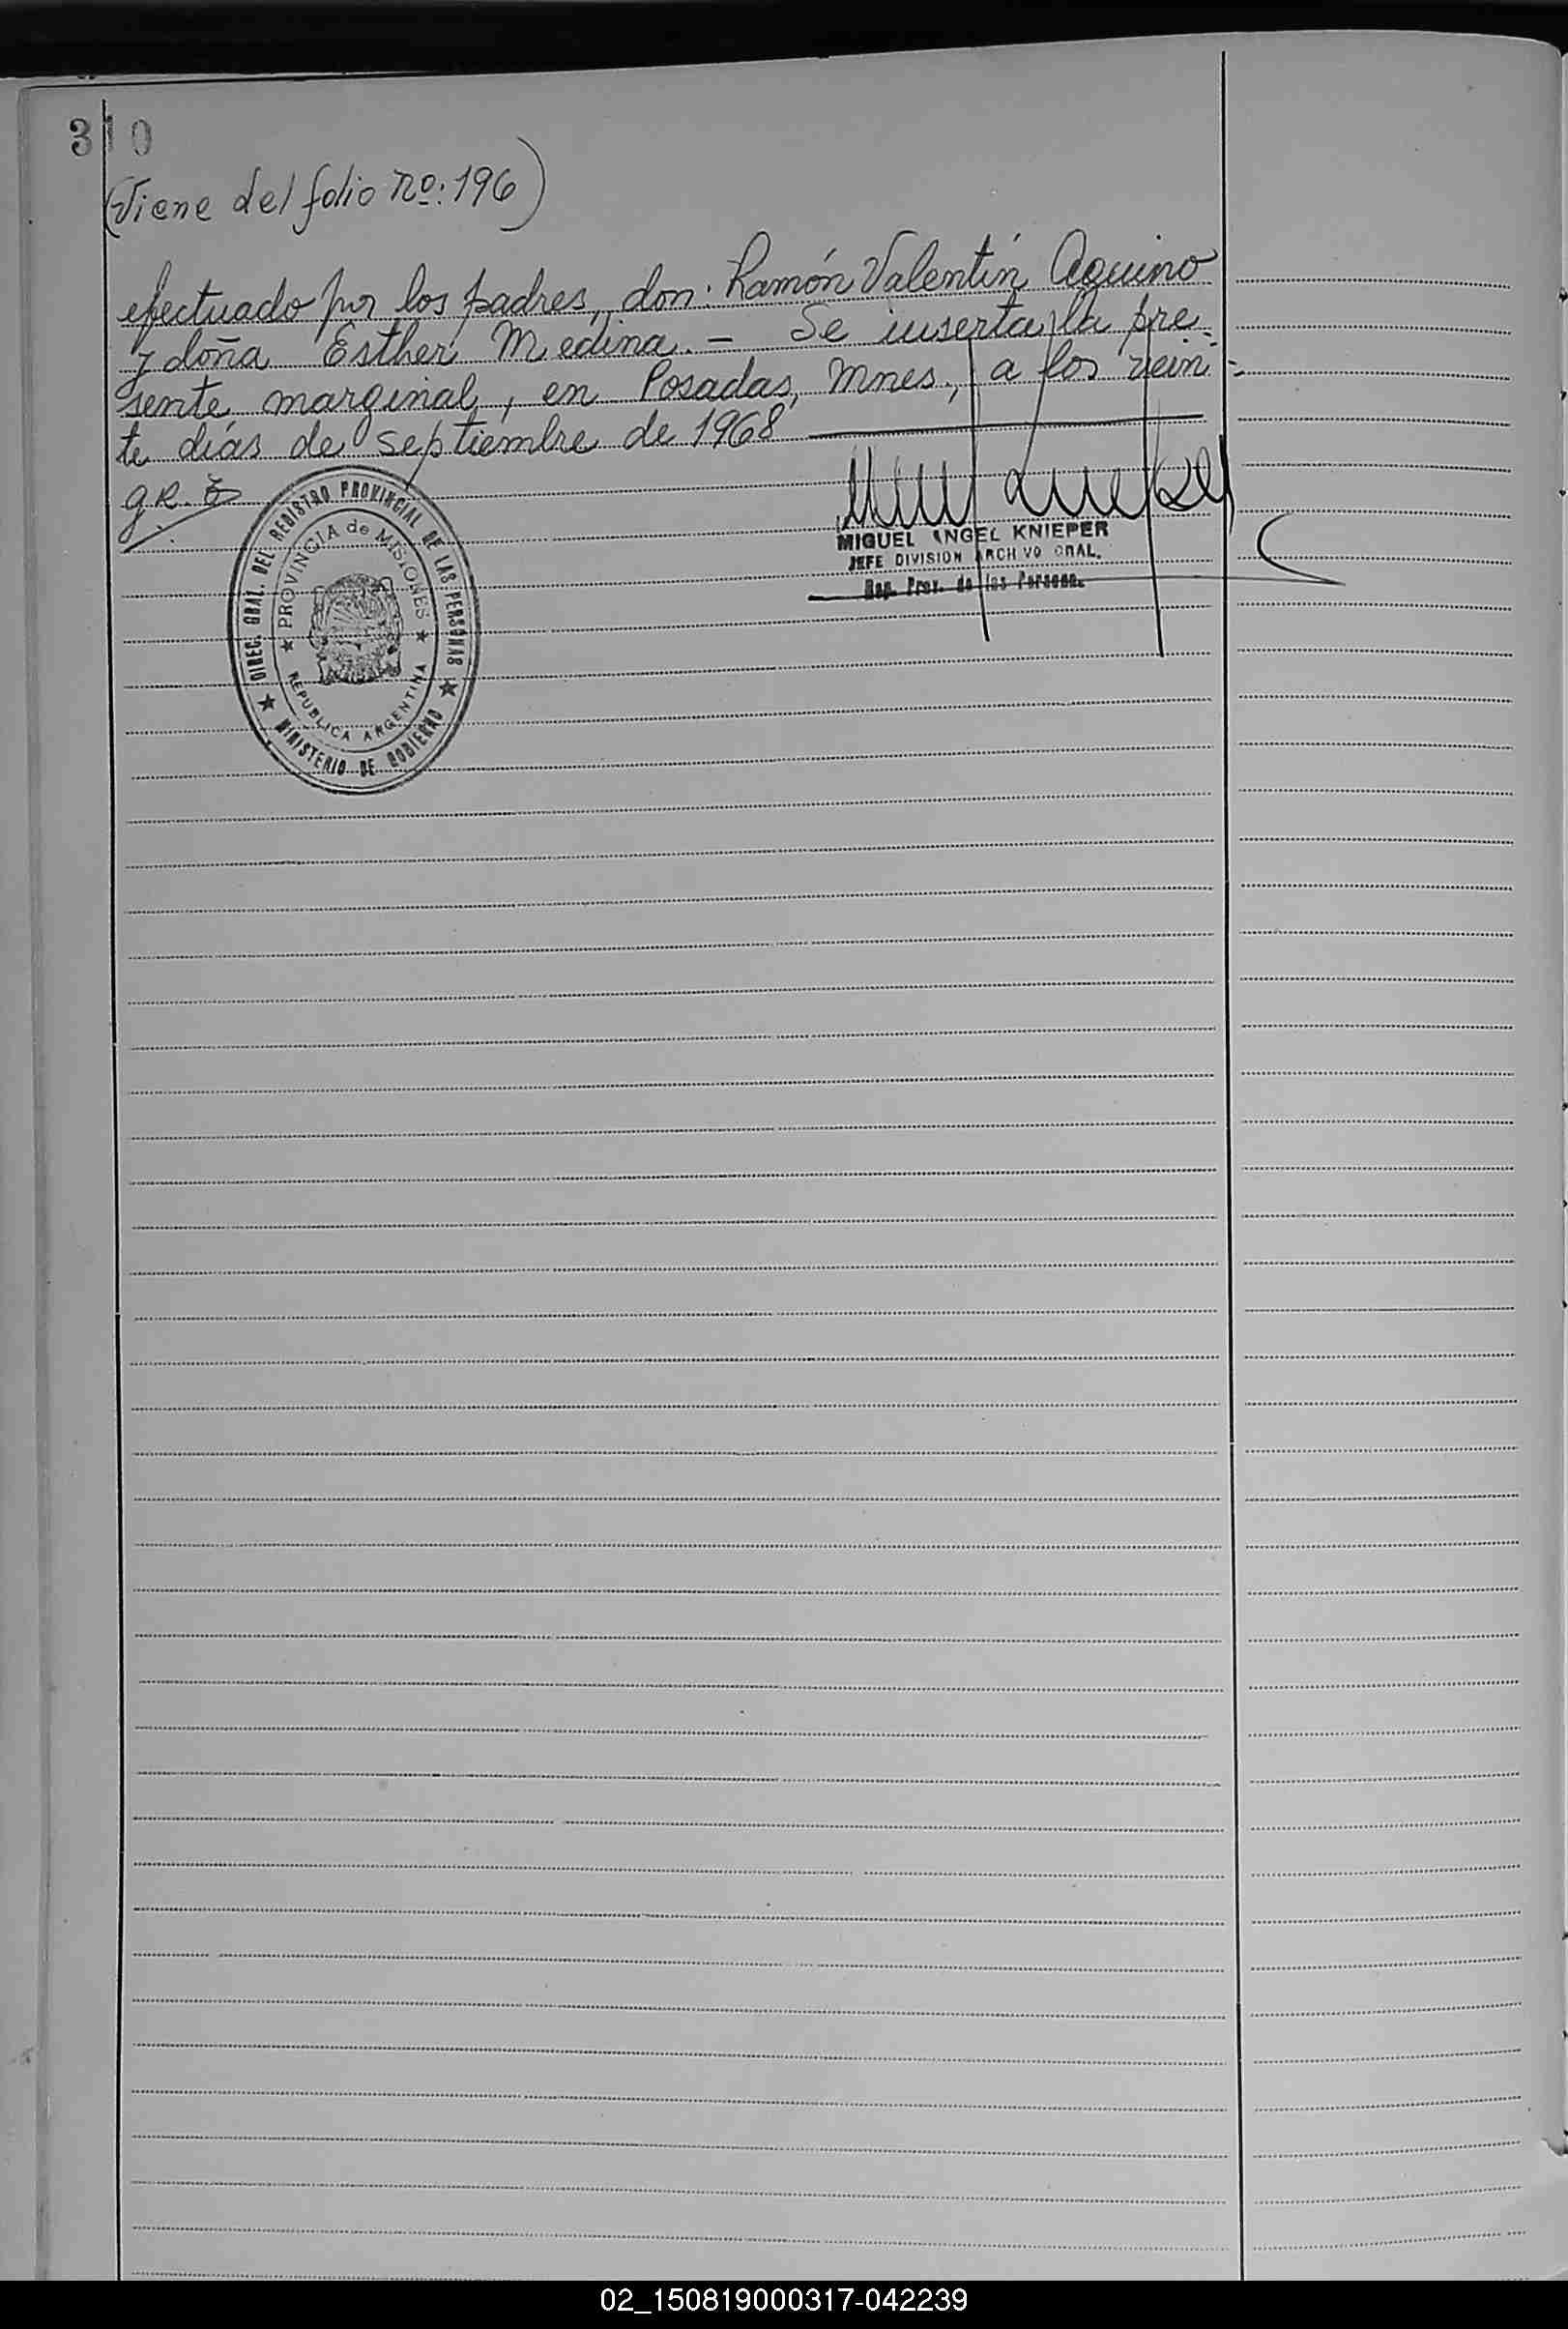 310
(Viene del folio No: 196)
efectuado por los padres, don: Ramón Valentín Aquino
y doña Esther Medina. – Se inserta la pre-
sente marginal, en Posadas, Mnes., a los vein-
te días de septiembre de 1968
G.R.
DIREC. GRAL. DEL REGISTRO PROVINCIAL DE LAS PERSONAS
★ PROVINCIA de MISIONES ★
REPUBLICA ARGENTINA
★ MINISTERIO DE GOBIERNO ★
MIGUEL ANGEL KNIEPER
JEFE DIVISION ARCHIVO GRAL.
Reg. Prov. de las Personas
02_150819000317-042239